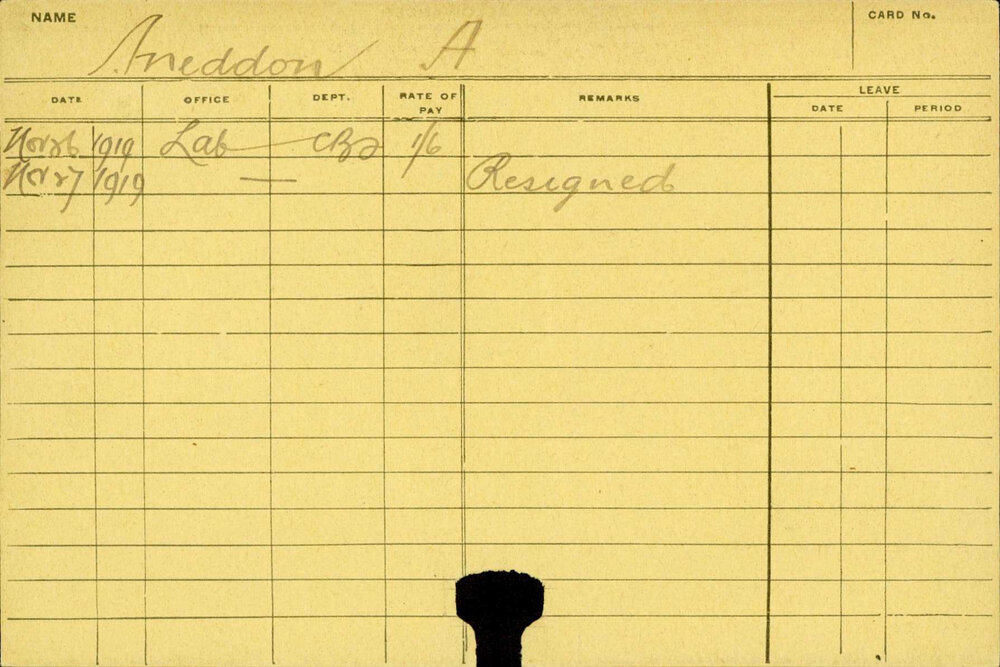 NAME CARD No.
Sneddon A
DATE OFFICE DEPT. RATE OF PAY REMARKS LEAVE
DATE PERIOD
Nov 26 1919 Lab 1/6
Nov 27 1919 — Resigned